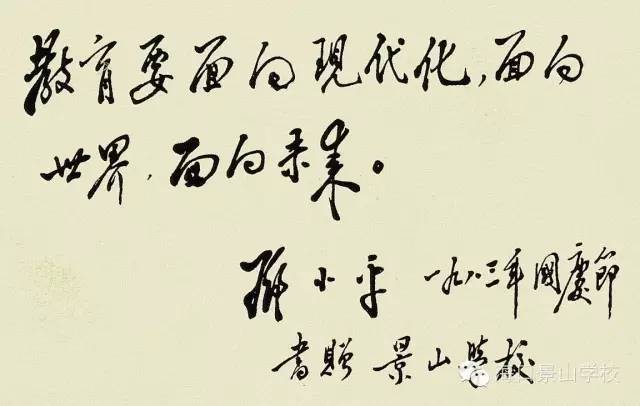 教育要面向现代化,面向
世界,面向未来。
邓小平 一九八三年國慶節
書贈 景山學校
海口景山学校